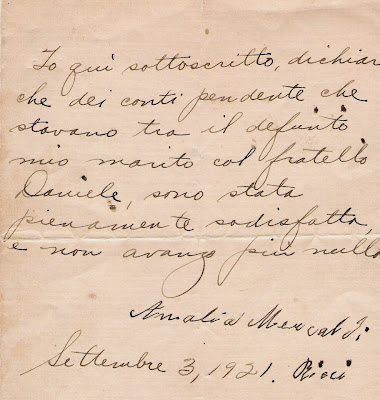 Io quì sottoscritto, dichiar
che dei conti pendente che
stavano tra il defunto
mio marito col fratello
Daniele, sono stata
pienamente sodisfatta,
e non avanzo più nulla
Amalia
Settembre 3, 1921. Ricci